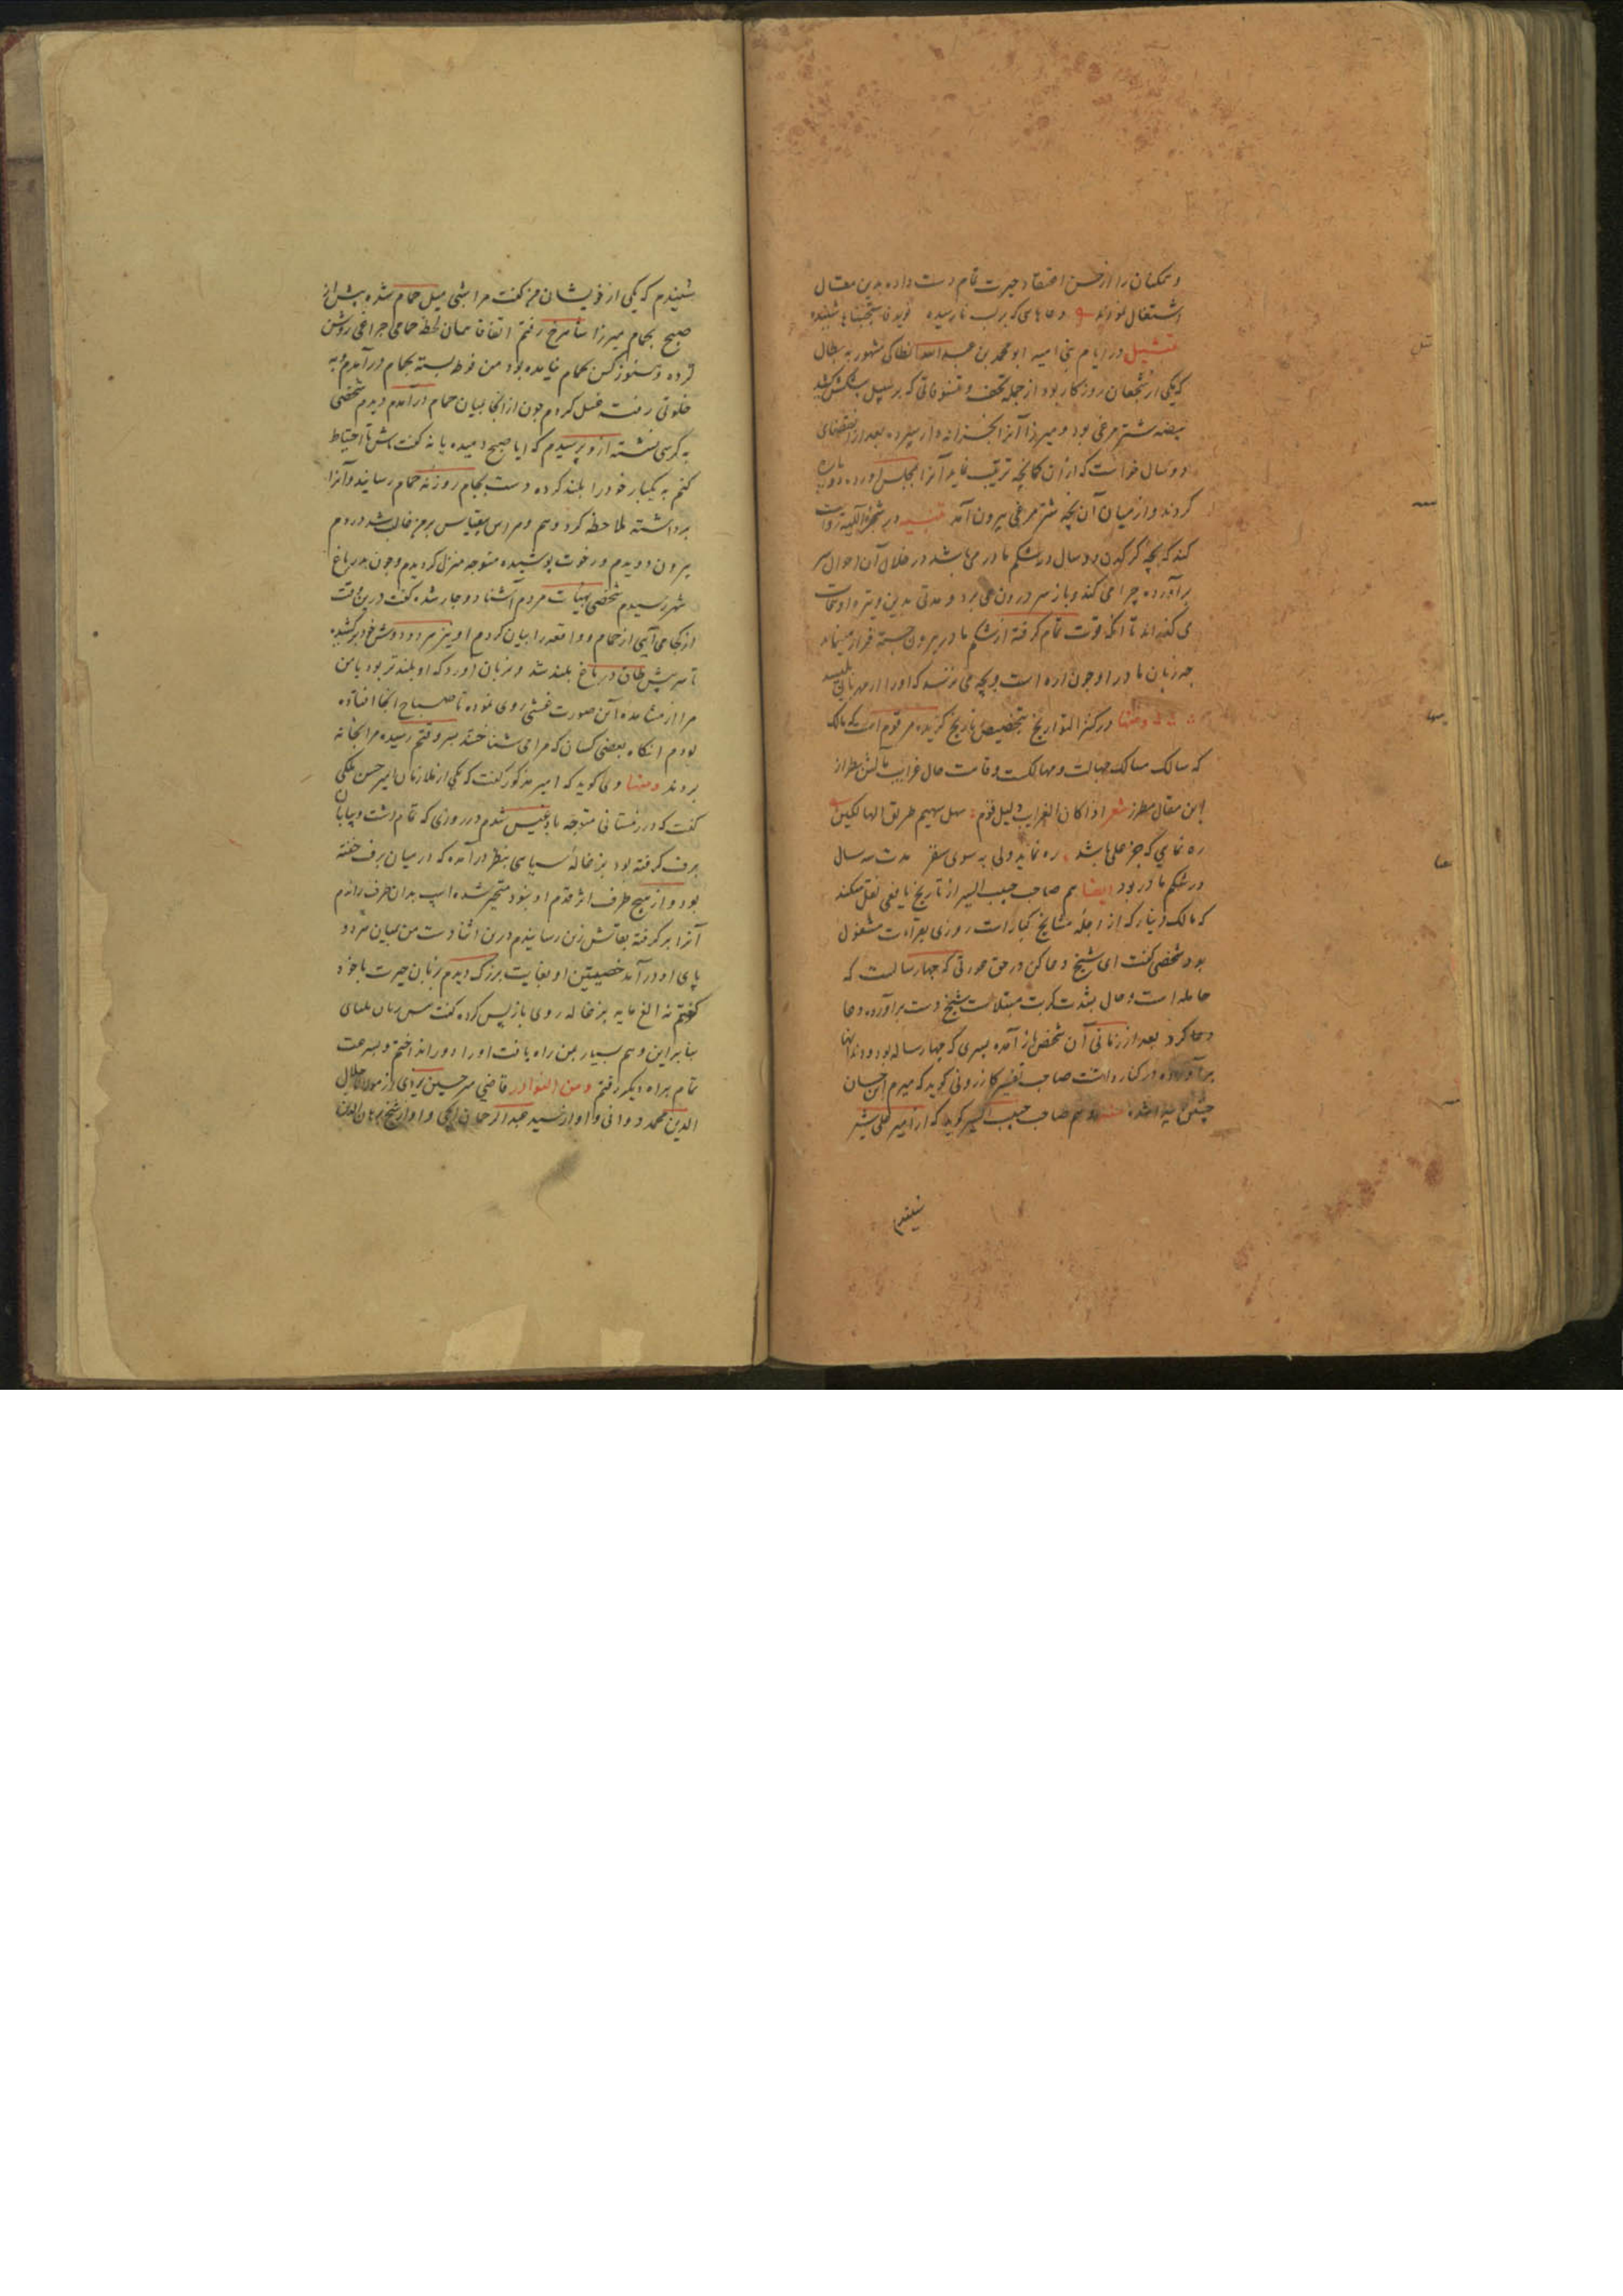 و همکنان را از حسن اعتقاد حیرت تمام دست داده بدین مقال
اشتغال نمودند دعاهای که بر لب نارسیده نوید فاستجبناها شنیده
تمثیل در ایام بنی امیه ابو محمد بن عبد الله انطاکی مشهور به بطال
که یکی از شجعان روزکار بود از جمله تحف و تنسوقاتی که بر سبیل پیشکش
بیضه شتر مرغی بود و میرزا آنرا بخزانه دار سپرده بعد از انقضای
دو سال خواست که از آن کمانچه ترتیب نماید آنرا بمجلس آورده دو پاره
کردند و از میان آن بچه شتر مرغی بیرون آمد در شجرة الالهیة روایت
کند که بچه کرکدن دو سال در شکم مادر می باشد در خلال آن احوال سر
برآورده چرا می کند و باز سر درون می برد و مدتی بدین وتیره اوقات
می کذراند تا آنکه قوت تمام کرفته از شکم مادر بیرون جسته فرار مینماید
چه زبان مادر او چون اره است و بچه می ترسد که او را از مهربانی بلیسد
ومنها در کنز التواریخ بتخصیص تاریخ کزیده مرقوم است که مالک
که سالک مسالک جهالت و مهالکست و قامت حال غرایب مآلش بطراز
این مقال مطرز شعر اذا کان الغراب دلیل قوم سیهدیهم طریق الهالکین
ره نمایی که جز علی باشد ره نماید ولی به سوی سقر مدت سه سال
در شکم مادر بود ایضا هم صاحب حبیب السیر از تاریخ یافعی نقل میکند
که مالک دینار که از اجله مشایخ کبار است روزی بقراءت مشغول
بود شخصی کفت ای شیخ دعا کن در حق عورتی که چهار سالست که
حامله است و حال بشدت کربت مبتلاست شیخ دست برآورده دعا
دعا کرد بعد از زمانی آن شخص باز آمده پسری که چهار ساله بود و دندانها
برآورده در کنار داشت صاحب تفسیر کازرونی کوید که میرم ابن حسان
چنین پیدا شده هم صاحب حبیب السیر کوید که از امیر علی شیر
شنیدم
شنیدم که یکی از خویشان من کفت مرا شبی میل حمام شده پیش از
صبح بحمام میرزا شاهرخ رفتم اتفاقا همان لحظه حمامی چراغی روشن
کرده و هنوز کس بحمام نیامده بود من فوطه بسته بحمام درآمدم و به
خلوتی رفته غسل کردم چون از آنجا بمیان حمام درآمدم دیدم شخصی
به کرسی نشسته ازو پرسیدم که ایا صبح دمیده یا نه کفت باش تا احتیاط
کنم به یکبار خود را بلند کرده دست بجام روزنه حمام رسانید و آنرا
برداشته ملاحظه کرد وهم و هراس بیقیاس بر من غالب شد در دم
بیرون دویدم و رخوت پوشیده متوجه منزل کردیدم و چون بدر باغ
شهر رسیدم شخصی بهیات مردم آشنا دوچار شده کفت درین وقت
از کجا می آیی از حمام و واقعه را بیان کردم او نیز سر و دوش خود برکشیده
تا سرش بطاق در باغ بلند شد و بزبان آورد که او بلندتر بود یا من
مرا از مشاهده آن صورت غشی روی نموده تا صباح آنجا افتاده
بودم آنکاه بعضی کسان که مرا می شناختند بسر وقتم رسیده مرا بخانه
بردند ومنها وی کوید که امیر مذکور کفت که یکی از ملازمان امیر حسن ملکی
کفت که در زمستانی متوجه بادغیس شدم در روزی که تمام دشت و بیابان
برف کرفته بود بزغاله سیاهی بنظر درآمده که در میان برف خفته
بود و از هیچ طرف اثر قدم او نبود متحیر شده اسپ بدان طرف راندم
آنرا برکرفته بقاش زین رسانیدم درین اثنا دست من بمیان هر دو
پای او درآمد خصیتین او بغایت بزرک دیدم بزبان حیرت با خود
کفتم نه الغ خایه بزغاله روی باز پس کرده کفت
بنابراین وهم بسیار بمن راه یافت او را دور انداختم و بسرعت
تمام براه دیکر رفتم ومن النوادر قاضی میر حسین یزدی از مولانا جلال
الدین محمد دوانی و او از سید عبد الرحمان ایجی و او از شیخ برهان الدین